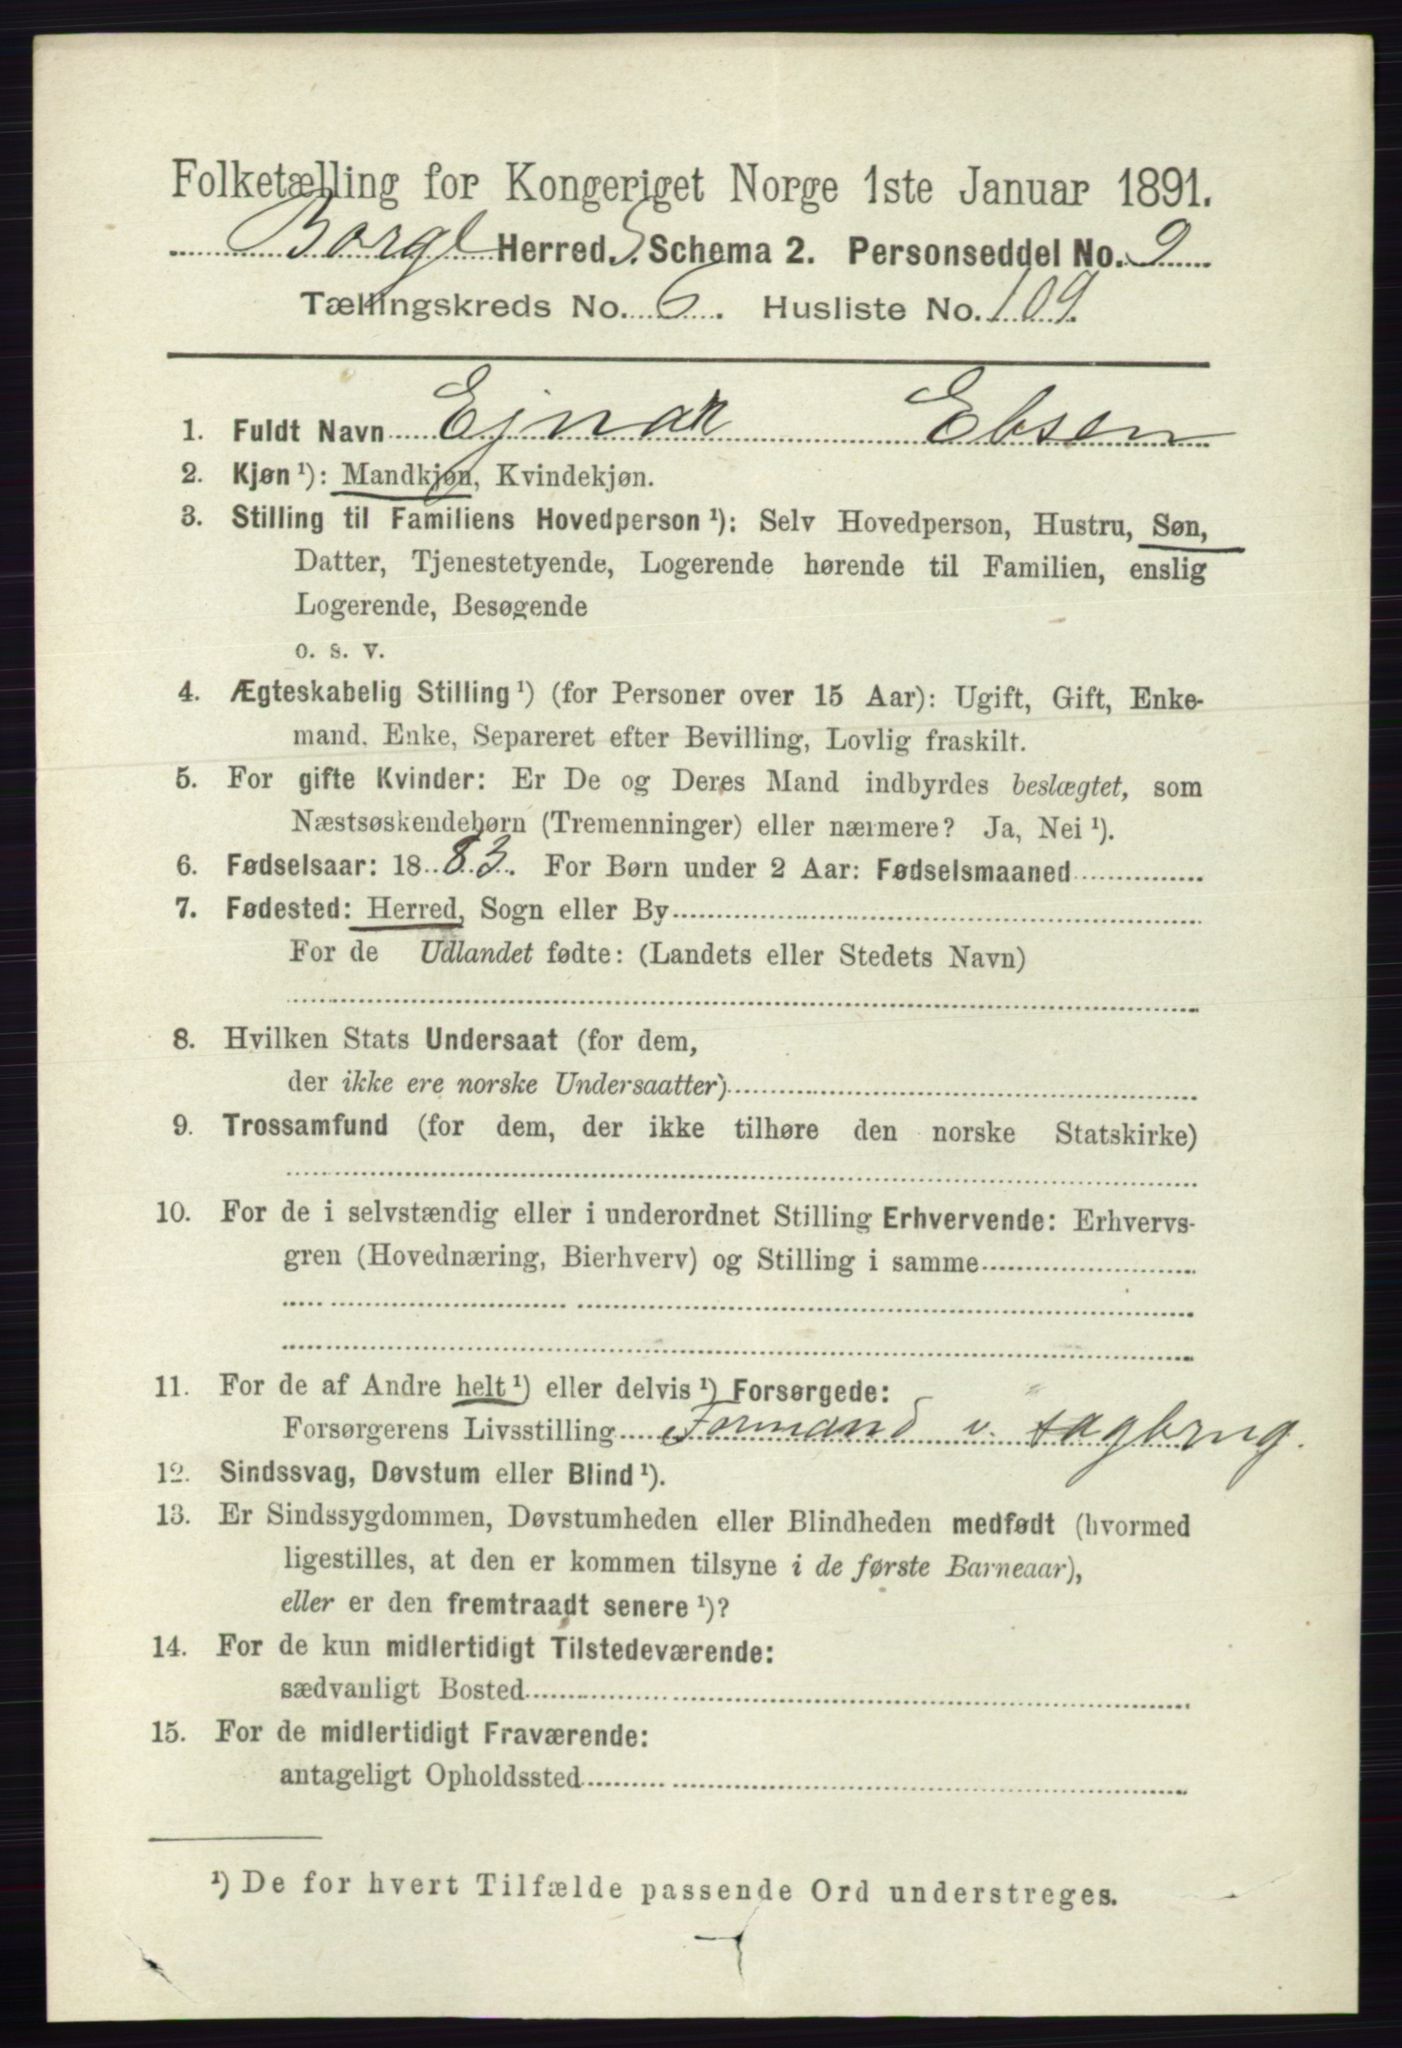 Folketælling for Kongeriget Norge 1ste Januar 1891.
Borge Herred. Schema 2. Personseddel No. 9
Tællingskreds No. 6. Husliste No. 109.
1. Fuldt Navn Ejnar Ebsen
2. Kjøn ¹): Mandkjøn, Kvindekjøn.
3. Stilling til Familiens Hovedperson ¹): Selv Hovedperson, Hustru, Søn,
Datter, Tjenestetyende, Logerende hørende til Familien, enslig
Logerende, Besøgende
o. s. v.
4. Ægteskabelig Stilling ¹) (for Personer over 15 Aar): Ugift, Gift, Enke-
mand, Enke, Separeret efter Bevilling, Lovlig fraskilt.
5. For gifte Kvinder: Er De og Deres Mand indbyrdes beslægtet, som
Næstsøskendebørn (Tremenninger) eller nærmere? Ja, Nei ¹).
6. Fødselsaar: 1883. For Børn under 2 Aar: Fødselsmaaned
7. Fødested: Herred, Sogn eller By
For de Udlandet fødte: (Landets eller Stedets Navn)
8. Hvilken Stats Undersaat (for dem,
der ikke ere norske Undersaatter)
9. Trossamfund (for dem, der ikke tilhøre den norske Statskirke)
10. For de i selvstændig eller i underordnet Stilling Erhvervende: Erhvervs-
gren (Hovednæring, Bierhverv) og Stilling i samme
11. For de af Andre helt ¹) eller delvis ¹) Forsørgede:
Forsørgerens Livsstilling Formand v. sagbrug.
12. Sindssvag, Døvstum eller Blind ¹).
13. Er Sindssygdommen, Døvstumheden eller Blindheden medfødt (hvormed
ligestilles, at den er kommen tilsyne i de første Barneaar),
eller er den fremtraadt senere ¹)?
14. For de kun midlertidigt Tilstedeværende:
sædvanligt Bosted
15. For de midlertidigt Fraværende:
antageligt Opholdssted
¹) De for hvert Tilfælde passende Ord understreges.